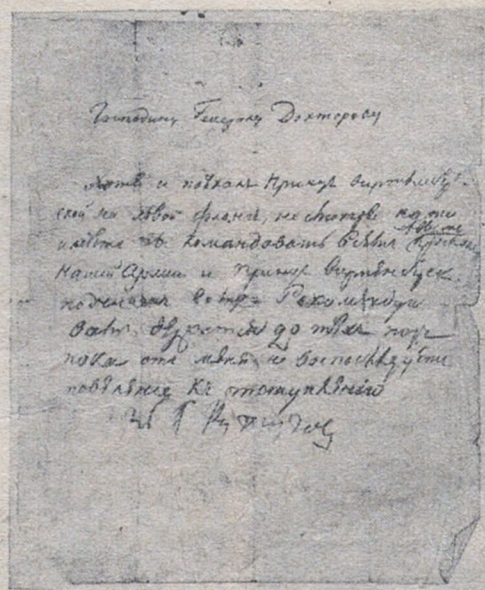 Господину Генералу Дохторову
Хотя и поѣхалъ Принцъ Виртембер
ской на левой флангъ, не смотря на то
имѣете вы командовать всѣмъ левымъ крыломъ
нашей Армии и Принцъ Виртембергск
подчиненъ вамъ Рекомендую
вамъ держатся до тѣхъ поръ
пока отъ меня не воспоследуетъ
повѣление къ отступлению
К Г Кутузов